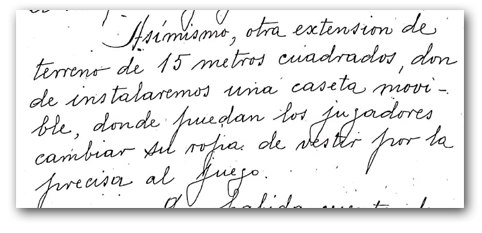 Asímismo, otra extension de
terreno de 15 metros cuadrados, don
de instalaremos una caseta movi-
ble, donde puedan los jugadores
cambiar su ropa de vestir por la
precisa al juego.